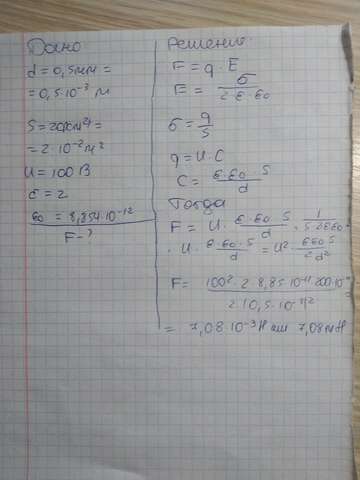 Дано
d = 0,5мм =
= 0,5·10⁻³ м
S = 200см² =
= 2·10⁻² м²
U = 100 В
ε = 2
ε₀ = 8,854·10⁻¹²
F - ?
Решение:
F = q · E
E = σ / 2·ε·ε₀
σ = q / S
q = U·C
C = ε·ε₀·S / d
Тогда
F = U · ε·ε₀·S / d · 1 / S·2εε₀ ·
· U · ε·ε₀·S / d = U² · εε₀S / 2d²
F = 100²·2·8,85·10⁻¹²·200·10⁻ / 2(0,5·10⁻³)²
= 7,08·10⁻³ Н или 7,08 мН